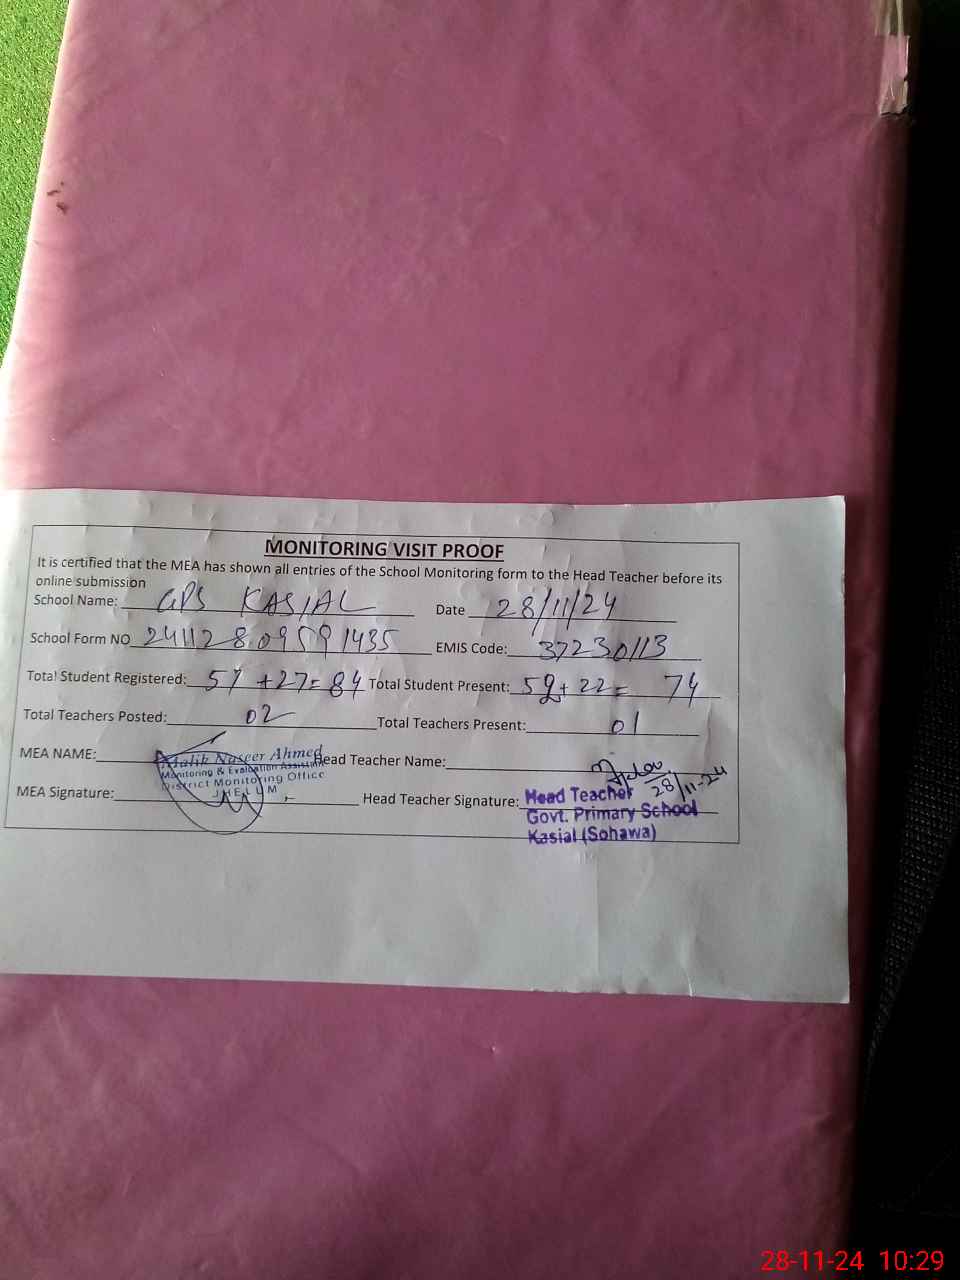 MONITORING VISIT PROOF
It is certified that the MEA has shown all entries of the School Monitoring form to the Head Teacher before its
online submission
School Name: GPS KASIAL Date 28/11/24
School Form NO 24112809591435 EMIS Code: 37230113
Total Student Registered: 57 +27= 84 Total Student Present: 52+ 22= 74
Total Teachers Posted: 02 Total Teachers Present: 01
MEA NAME: Malik Naseer Ahmed Head Teacher Name:
Monitoring & Evaluation Assistant
District Monitoring Office
JHELUM
28/11-24
MEA Signature: Head Teacher Signature: Head Teacher
Govt. Primary School
Kasial (Sohawa)
28-11-24 10:29